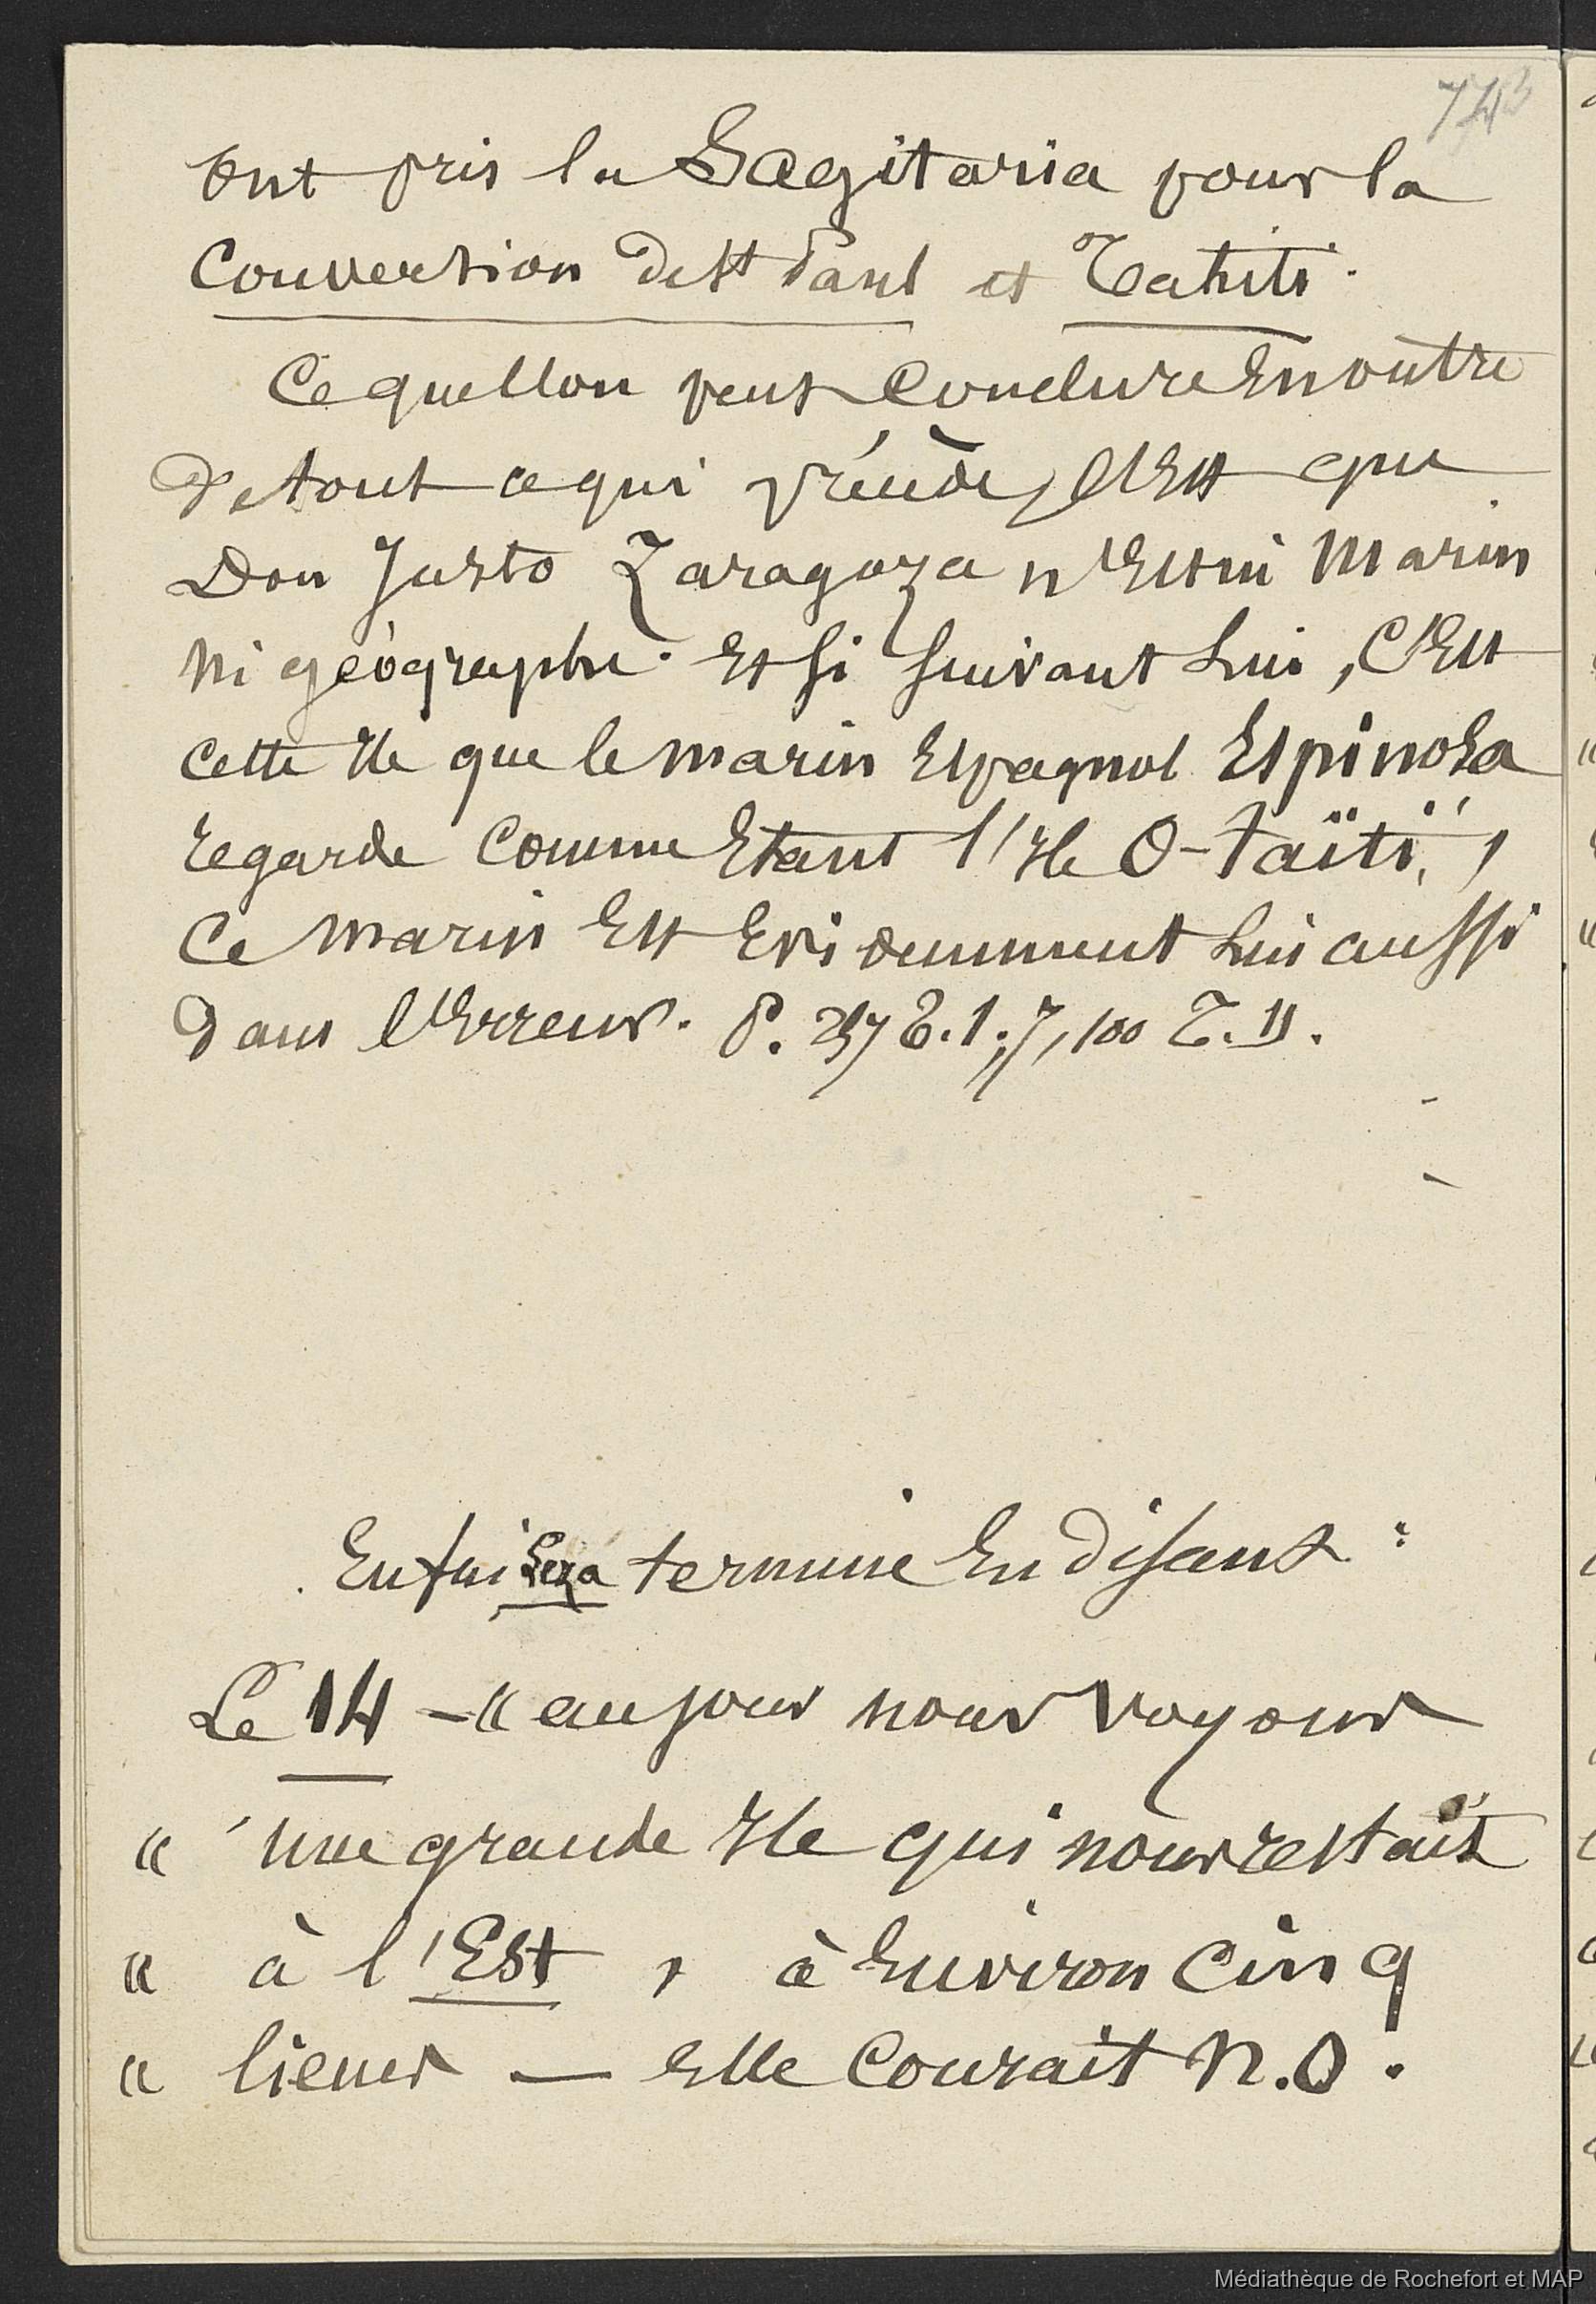 743
ont pris la Sagitaria pour la
Conversion de St Paul et Tahiti.
Ce que l'on peut Conclure En outre
de tout ce qui précède, C'Est que
Don Justo Zaragoza n'Est ni Marin
ni géographe. Et si suivant Lui, C'Est
cette Ile que le marin Espagnol Espinosa
regarde Comme Etant l'Ile O-Taïti,
Ce marin Est Evidemment Lui aussi
dans l'Erreur. P. 257 T. 1; 7, 100 T. II.
Enfin Leza termine En disant :
Le 14 - « au jour nous voyons
« une grande Ile qui nous restait
« à l'Est, à Environ Cinq
« lieues — Elle Courait N.O.
Médiathèque de Rochefort et MAP